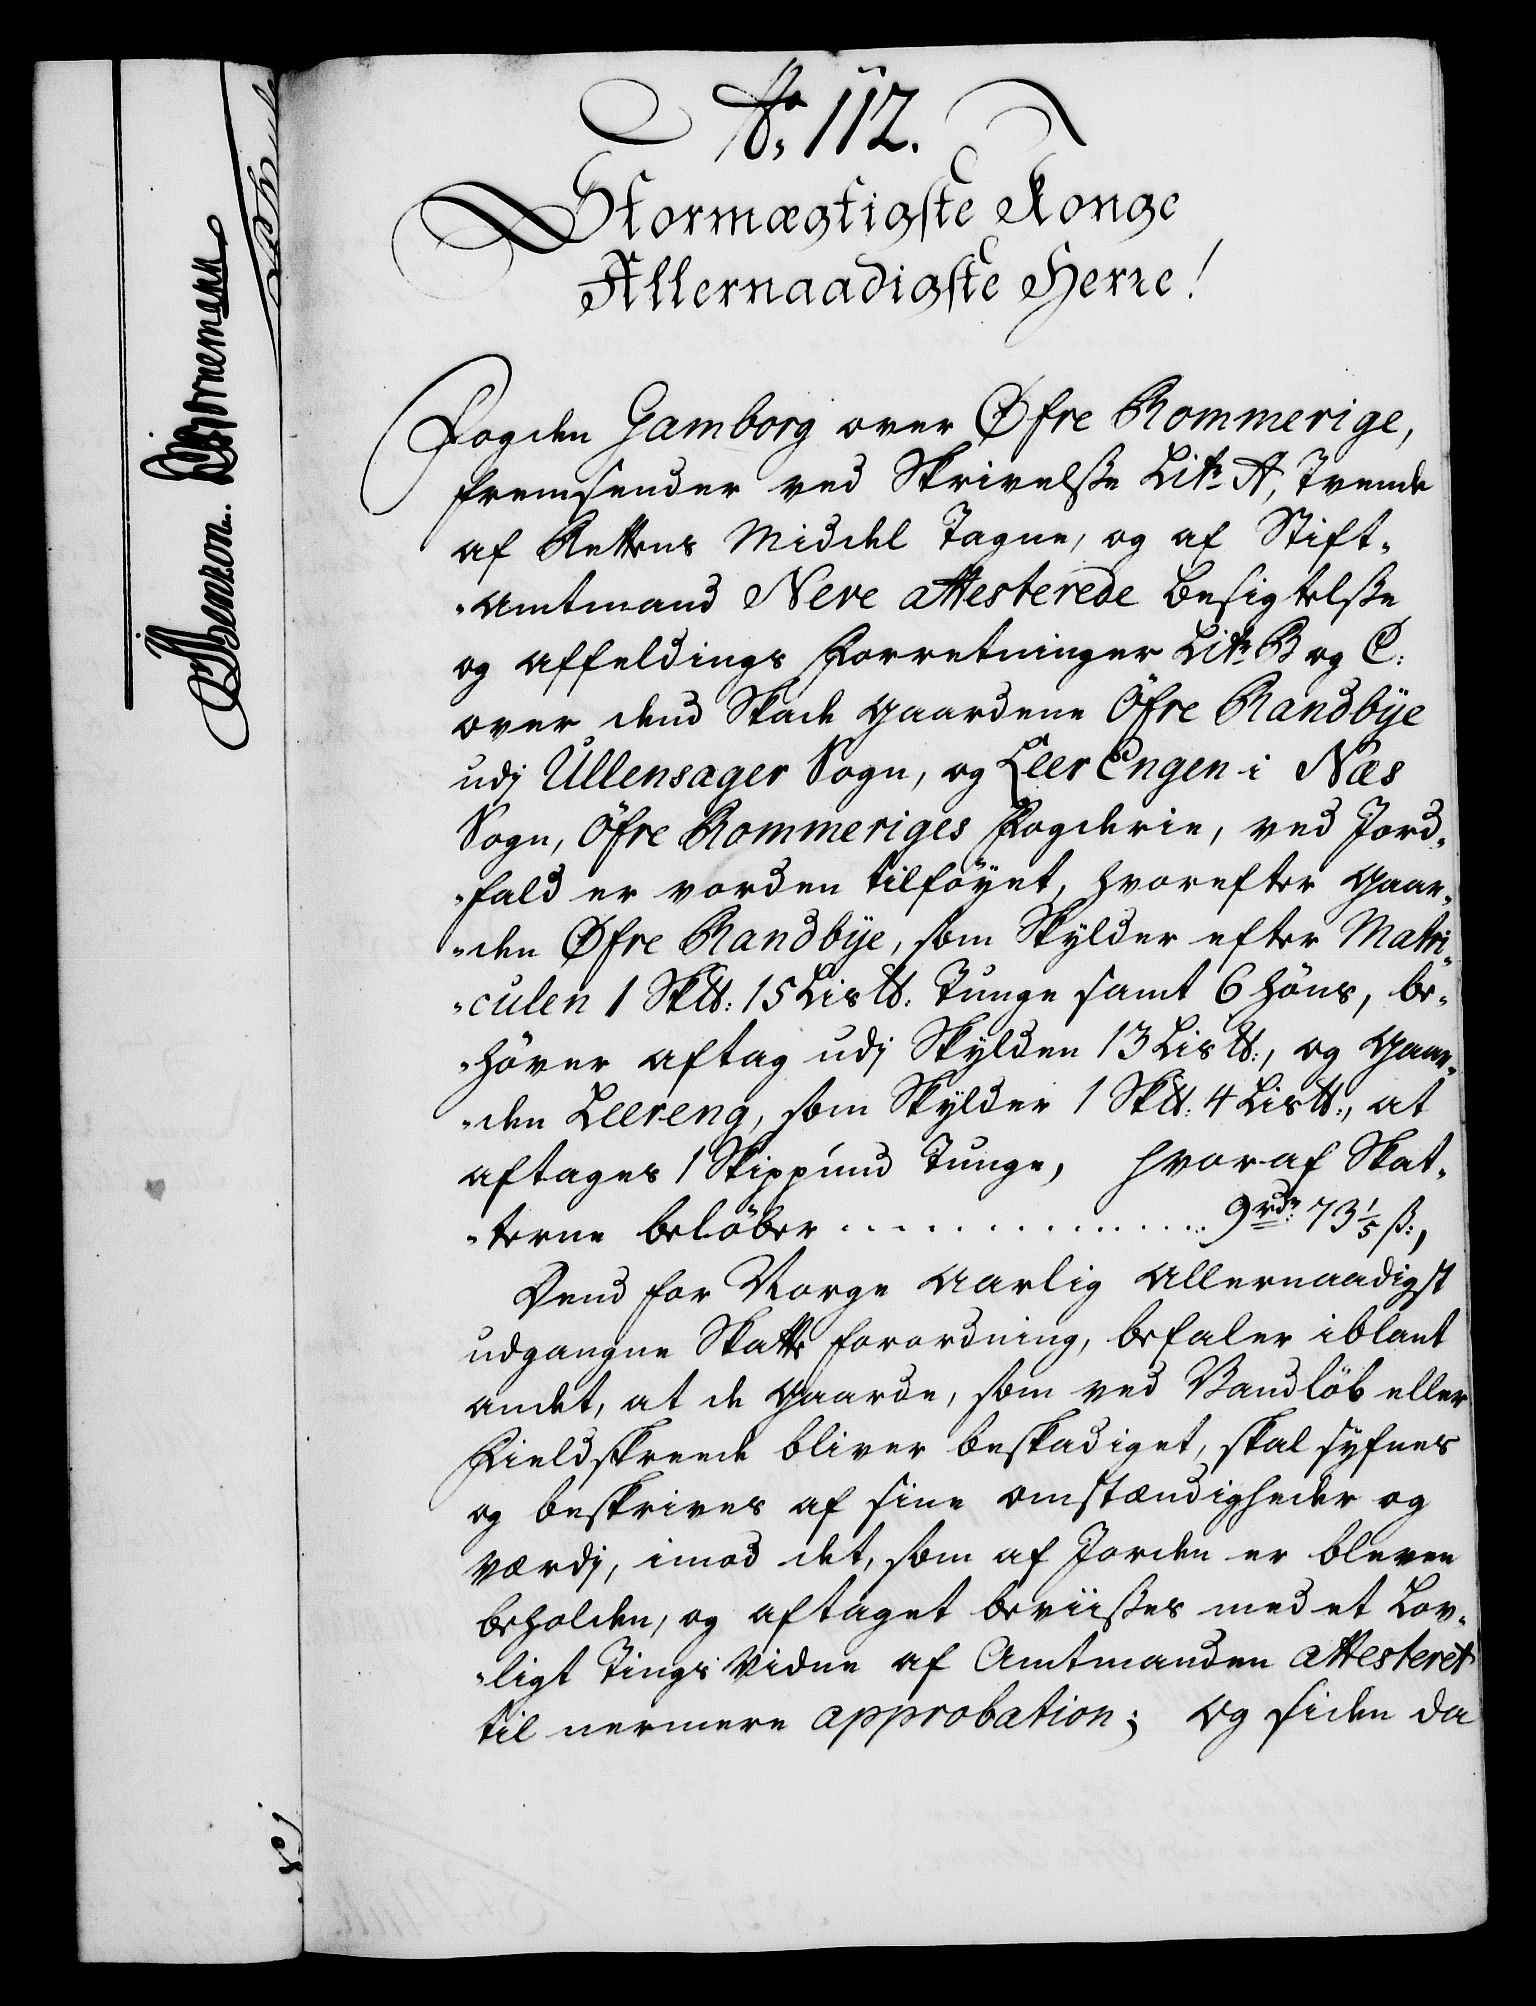 No. 112.
Stormægtigste Konge
Allernaadigste Herre!
Fogden Gamborg over Øfre Rommerige,
fremsender ved Skrivelsse Litr A, Tvende
af Rettens Middel Tagne, og af Stift-
-amtmand Neve attesterede besigtelsse
og affeldings Forretninger Litr B og C:
over dend Skade gaardene Öfre Randbye
udj Ullensager Sogn, og Leer Engen i Næs
Sogn, Öfre Rommeriges Fogderie, ved Jord-
-fald er vorden tilföyet, hvorefter gaar-
-den Øfre Randbye, som Skylder efter Matri-
-culen 1 Sk℔: 15 Lis℔: Tunge samt 6 höns, be-
-höver aftag udj Skylden 13 Lis℔:, og gaar-
-den Leereng, som Skylder 1 Sk℔: 4 Lis℔:, at
aftages 1 Skippund Tunge, hvoraf Skat-
-terne belöber ............... 9 rdr: 73 1/5 ß:,
Dend for Norge aarlig allernaadigst
udgangne Skatte forordning, befaler iblant
andet, at de gaarde, som ved Vandlöb eller
Fieldskreede bliver beskadiget, skal syfnes
og beskrives af sine omstændigheder og
værdj, imod det, som af Jorden er bleven
beholden, og aftaget beviisses med et Lov-
-ligt Tings Vidne af Amtmanden attesteret
til nermere approbation; og siden da
Benzon. Bornemann